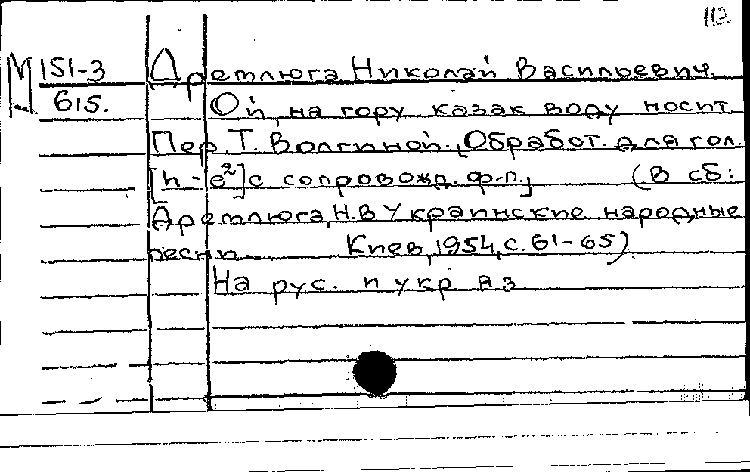 112
М 151-3 Дремлюга Николай Васильевич.
615. Ой, на гору казак воду носит.
Пер. Т. Волгиной. Обработ. для гол.
[h - e²] с сопровожд. ф.-п. (В сб:
Дремлюга, Н.В Украинские народные
песни. Киев, 1954, с. 61-65)
На рус. и укр яз